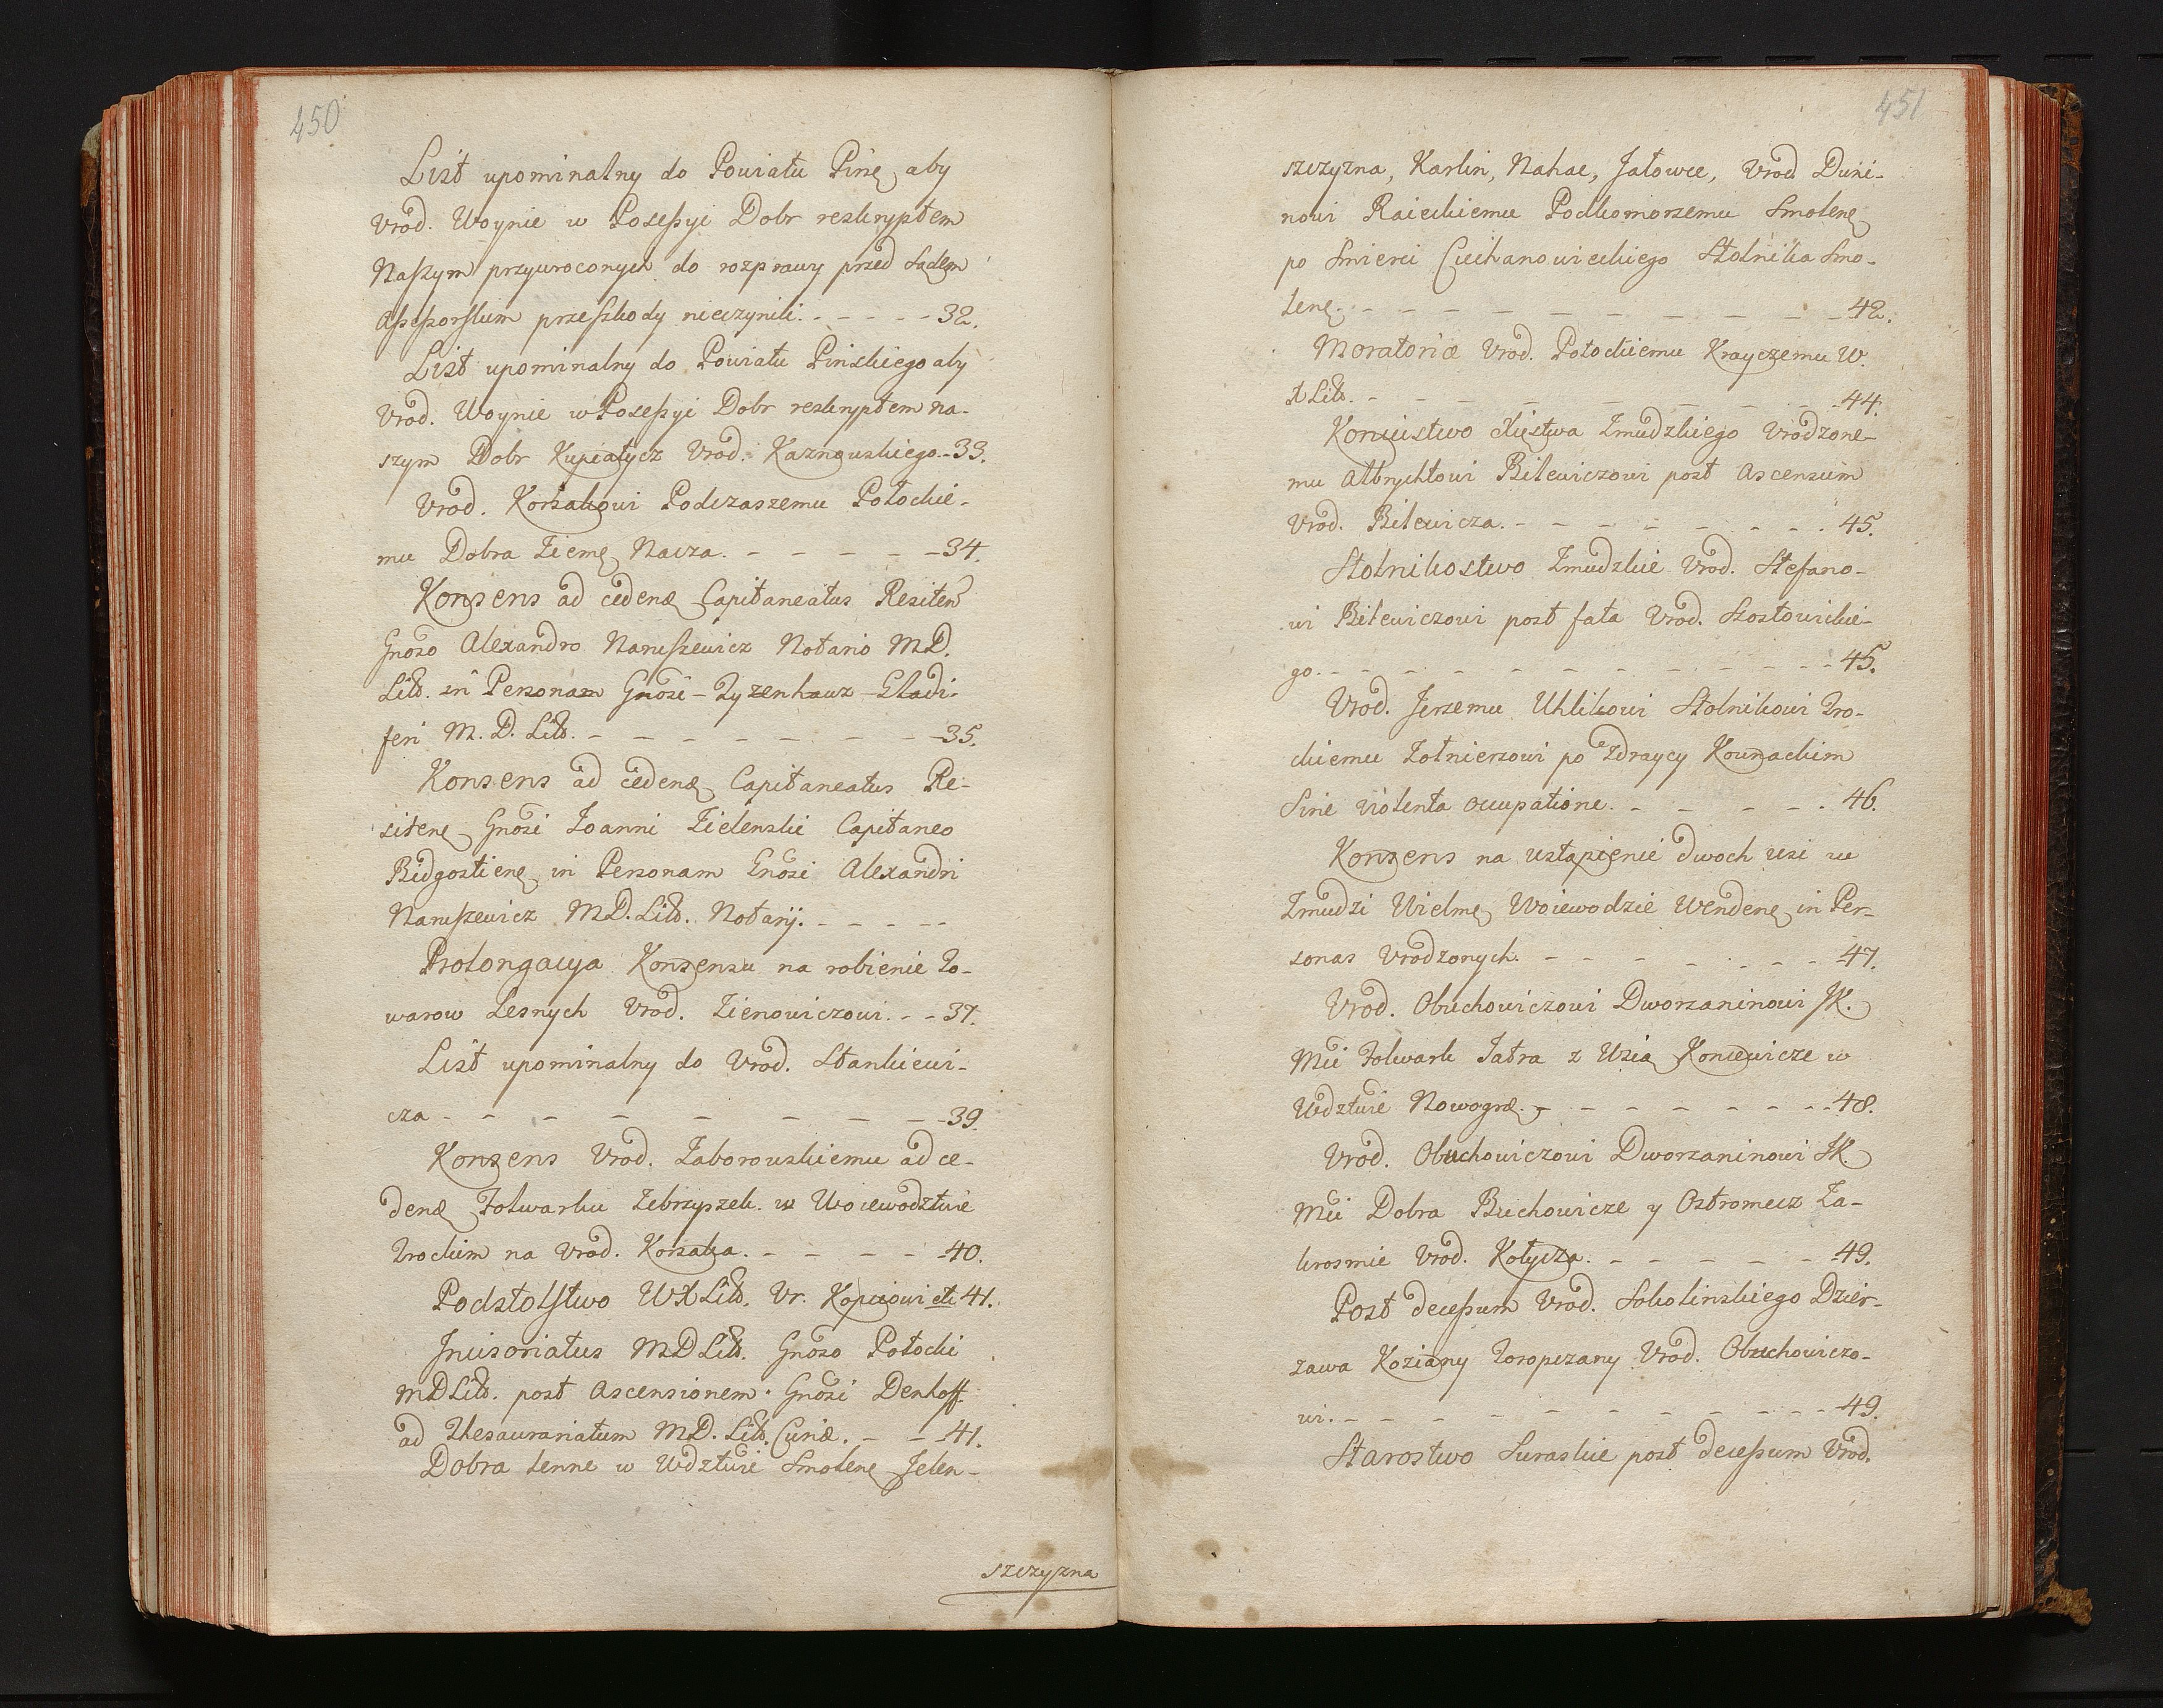 450
List upominalny do Powiatu Pinę aby
Vrod. Woynie w Posessyi Dobr reskryptem
Naszym przywroconych do rozprawy przed Sądem
Assessorskim przeszkody nieczynili. - - - - - 32.
List upominalny do Powiatu Pinskiego aby
Vrod. Woynie w Posessyi Dobr reskryptem na-
szym Dobr Kupiatycz Vrod. Kaznowskiego. - 33.
Vrod. Korsakowi Podczaszemu Połockie-
mu Dobra Ziemę Nacza. - - - - - 34.
Konsens ad cedenę Capitaneatus Resiten
Gnoso Alexandro Naruszewicz Notario M.D.
Litt. in Personam Gnosi - Tyzenhauz - Gladi-
feri M. D. Litt. - - - - - - - - 35.
Konsens ad cedenę Capitaneatus Re-
sitenę Gnosi Joanni Zielenski Capitaneo
Bidgostienę in Personam Gnosi Alexandri
Naruszewicz M.D. Litt. Notarij. - - - - -
Prolongacya Konsensu na robienie To-
warow Lesnych Vrod. Zienowiczowi. - - 37.
List upominalny do Vrod. Stankiewi-
cza - - - - - - - - 39.
Konsens Vrod. Zaborowskiemu ad ce-
denę Folwarku Zebrzyszek. w Woiewodztwie
Trockim na Vrod. Korsaka. - - - - - 40.
Podstolstwo WXLitt. Vr. Kopciowi etc 41.
Incisoriatus MDLitt. Gnoso Potocki
MDLitt. post Ascensionem Gnosi Denhoff
ad Thesaurariatum M.D. Litt. Curiæ. - - - 41.
Dobra Lenne w Wdztwie Smolenę Jelen-
szczyzna
451
szczyzna, Karlin, Nahac, Jałowce, Vrod Duni-
nowi Raieckiemu Podkomorzemu Smolenę
po Smierci Ciechanowieckiego Stolnika Smo-
lenę. - - - - - - - - - - 42.
Moratoriæ Vrod. Potockiemu Krayczemu W.
X Litt. - - - - - - - - - 44.
Koniustwo Xięstwa Zmudzkiego Vrodzone-
mu Albrychtowi Bilewiczowi post Ascensum
Vrod. Bilewicza. - - - - - - - - 45.
Stolnikostwo Zmudzkie Vrod. Stefano-
wi Bilewiczowi post fata Vrod. Szostowickie-
go. - - - - - - - - - - 45.
Vrod. Jerzemu Uhlikowi Stolnikowi Tro-
ckiemu Zołnierzowi po Zdraycy Kownackim
Sine violenta occupatione. - - - - - 46.
Konsens na ustąpienie dwoch wsi we
Zmudzi Wielmę Woiewodzie Wendenę in Per-
sonas Vrodzonych. - - - - - - - - 47.
Vrod. Obuchowiczowi Dworzaninowi JK.
Mci Folwark Jatra z Wsią Koniewicze w
Wdztwie Nowogrę. - - - - - - - - 48.
Vrod. Obuchowiczowi Dworzaninowi JK
Mci Dobra Buchowicze y Ostromecz Za-
krosmie Vrod. Kotycza. - - - - - 49.
Post decessum Vrod. Sokolinskiego Dzier-
zawa Koziany Toropczany Vrod. Obuchowiczo-
wi. - - - - - - - - - - 49.
Starostwo Suraskie post decessum Vrod.